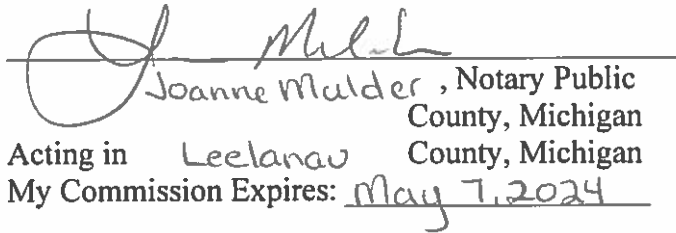 Joanne Mulder, Notary Public
County, Michigan
Acting in Leelanau County, Michigan
My Commission Expires: May 7, 2024